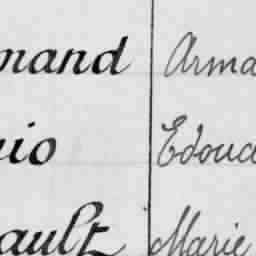 mand Arma
io Edoua
ault Marie